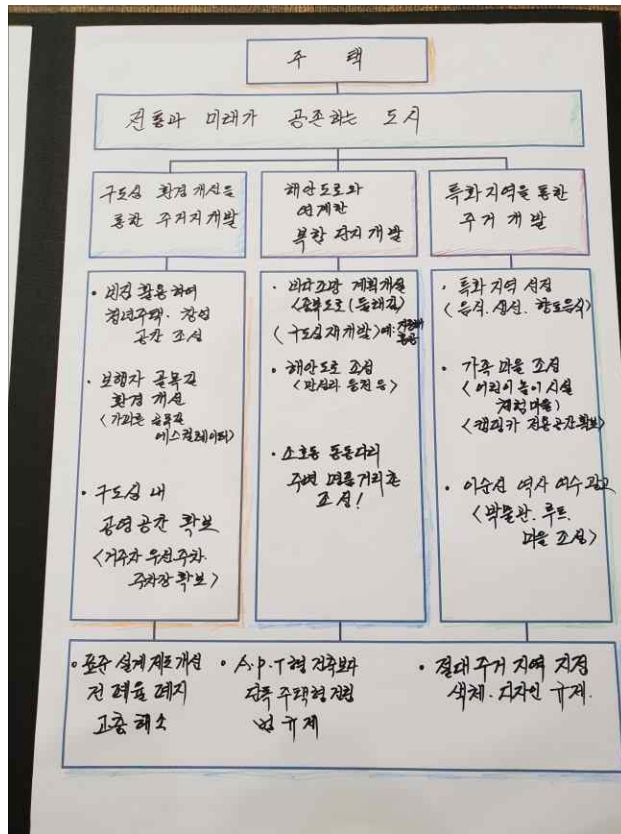 주 택
전통과 미래가 공존하는 도시
구도심 환경 개선을
통한 주거지 개발
해안도로와
연계한
복합 단지 개발
특화 지역을 통한
주거 개발
• 빈집 활용하여
청년주택. 창업
공간 조성
• 보행자 골목길
환경 개선
<가파른 골목길
에스컬레이터>
• 구도심 내
공영공간 확보
<거주자 우선주차.
주차장 확보>
• 바다조망 계획개설
(둘레길)
<구도심 재개발> 예:
• 해안도로 조성
• 소호동 동동다리
주변 명품거리촌
조성!
• 특화 지역 선정
<음식. 생선. 향토음식>
• 가족 마을 조성
<어린이 놀이 시설
체험마을>
<캠핑카 전용공간확보>
• 이순신 역사 여수 광고
<박물관. 루트.
마을 조성>
• 표준 설계 제도개선
폐지
고층 해소
• A.P.T형 건축보다
단독 주택형 건립
법 규제
• 절대 주거 지역 지정
색체. 디자인 규제.